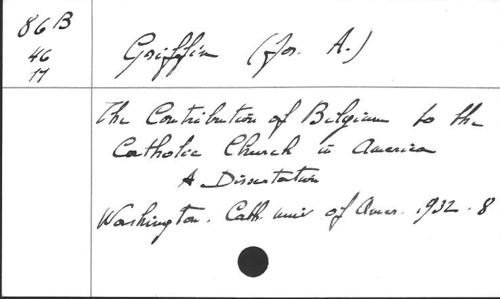 86 B
46
17
Griffin (Jos. A.)
The Contribution of Belgium to the
Catholic Church in America
A Dissertation
Washington. Cath. univ of Amer. 1932. 8